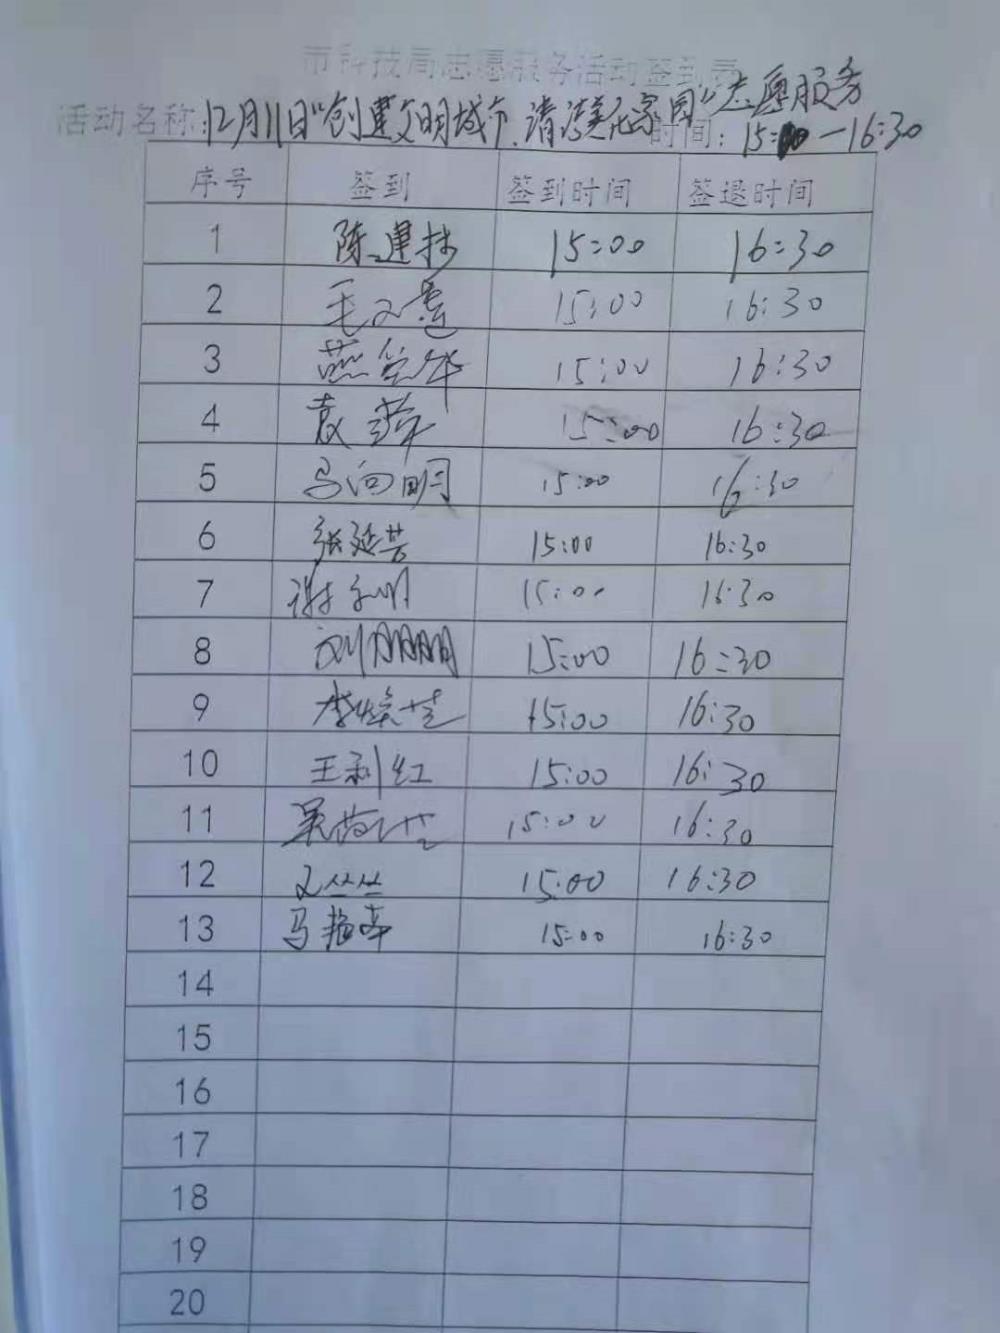 市科技局志愿服务活动签到表
活动名称:12月11日"创建文明城市,清洁美化家园"志愿服务
时间: 15:00—16:30
序号 签到 签到时间 签退时间
1 陈建林 15:00 16:30
2 毛 15:00 16:30
3 燕 华 15:00 16:30
4 袁 15:00 16:30
5 马向明 15:00 16:30
6 张延芳 15:00 16:30
7 谢 明 15:00 16:30
8 刘朋朋 15:00 16:30
9 李 15:00 16:30
10 王利红 15:00 16:30
11 吴 15:00 16:30
12 文丛丛 15:00 16:30
13 马艳 15:00 16:30
14
15
16
17
18
19
20